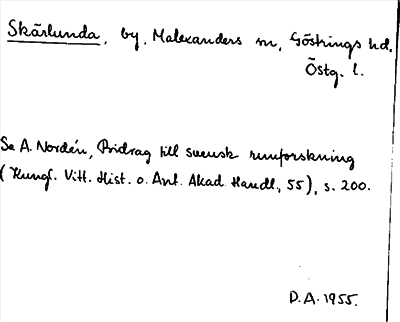 Skärlunda, by, Malexanders sn, Göstrings hd.
Östg. l.
Se A. Nordén, Bidrag till svensk runforskning
(Kungl. Vitt. Hist. o. Ant. Akad. Handl., 55), s. 200.
D.A. 1955.